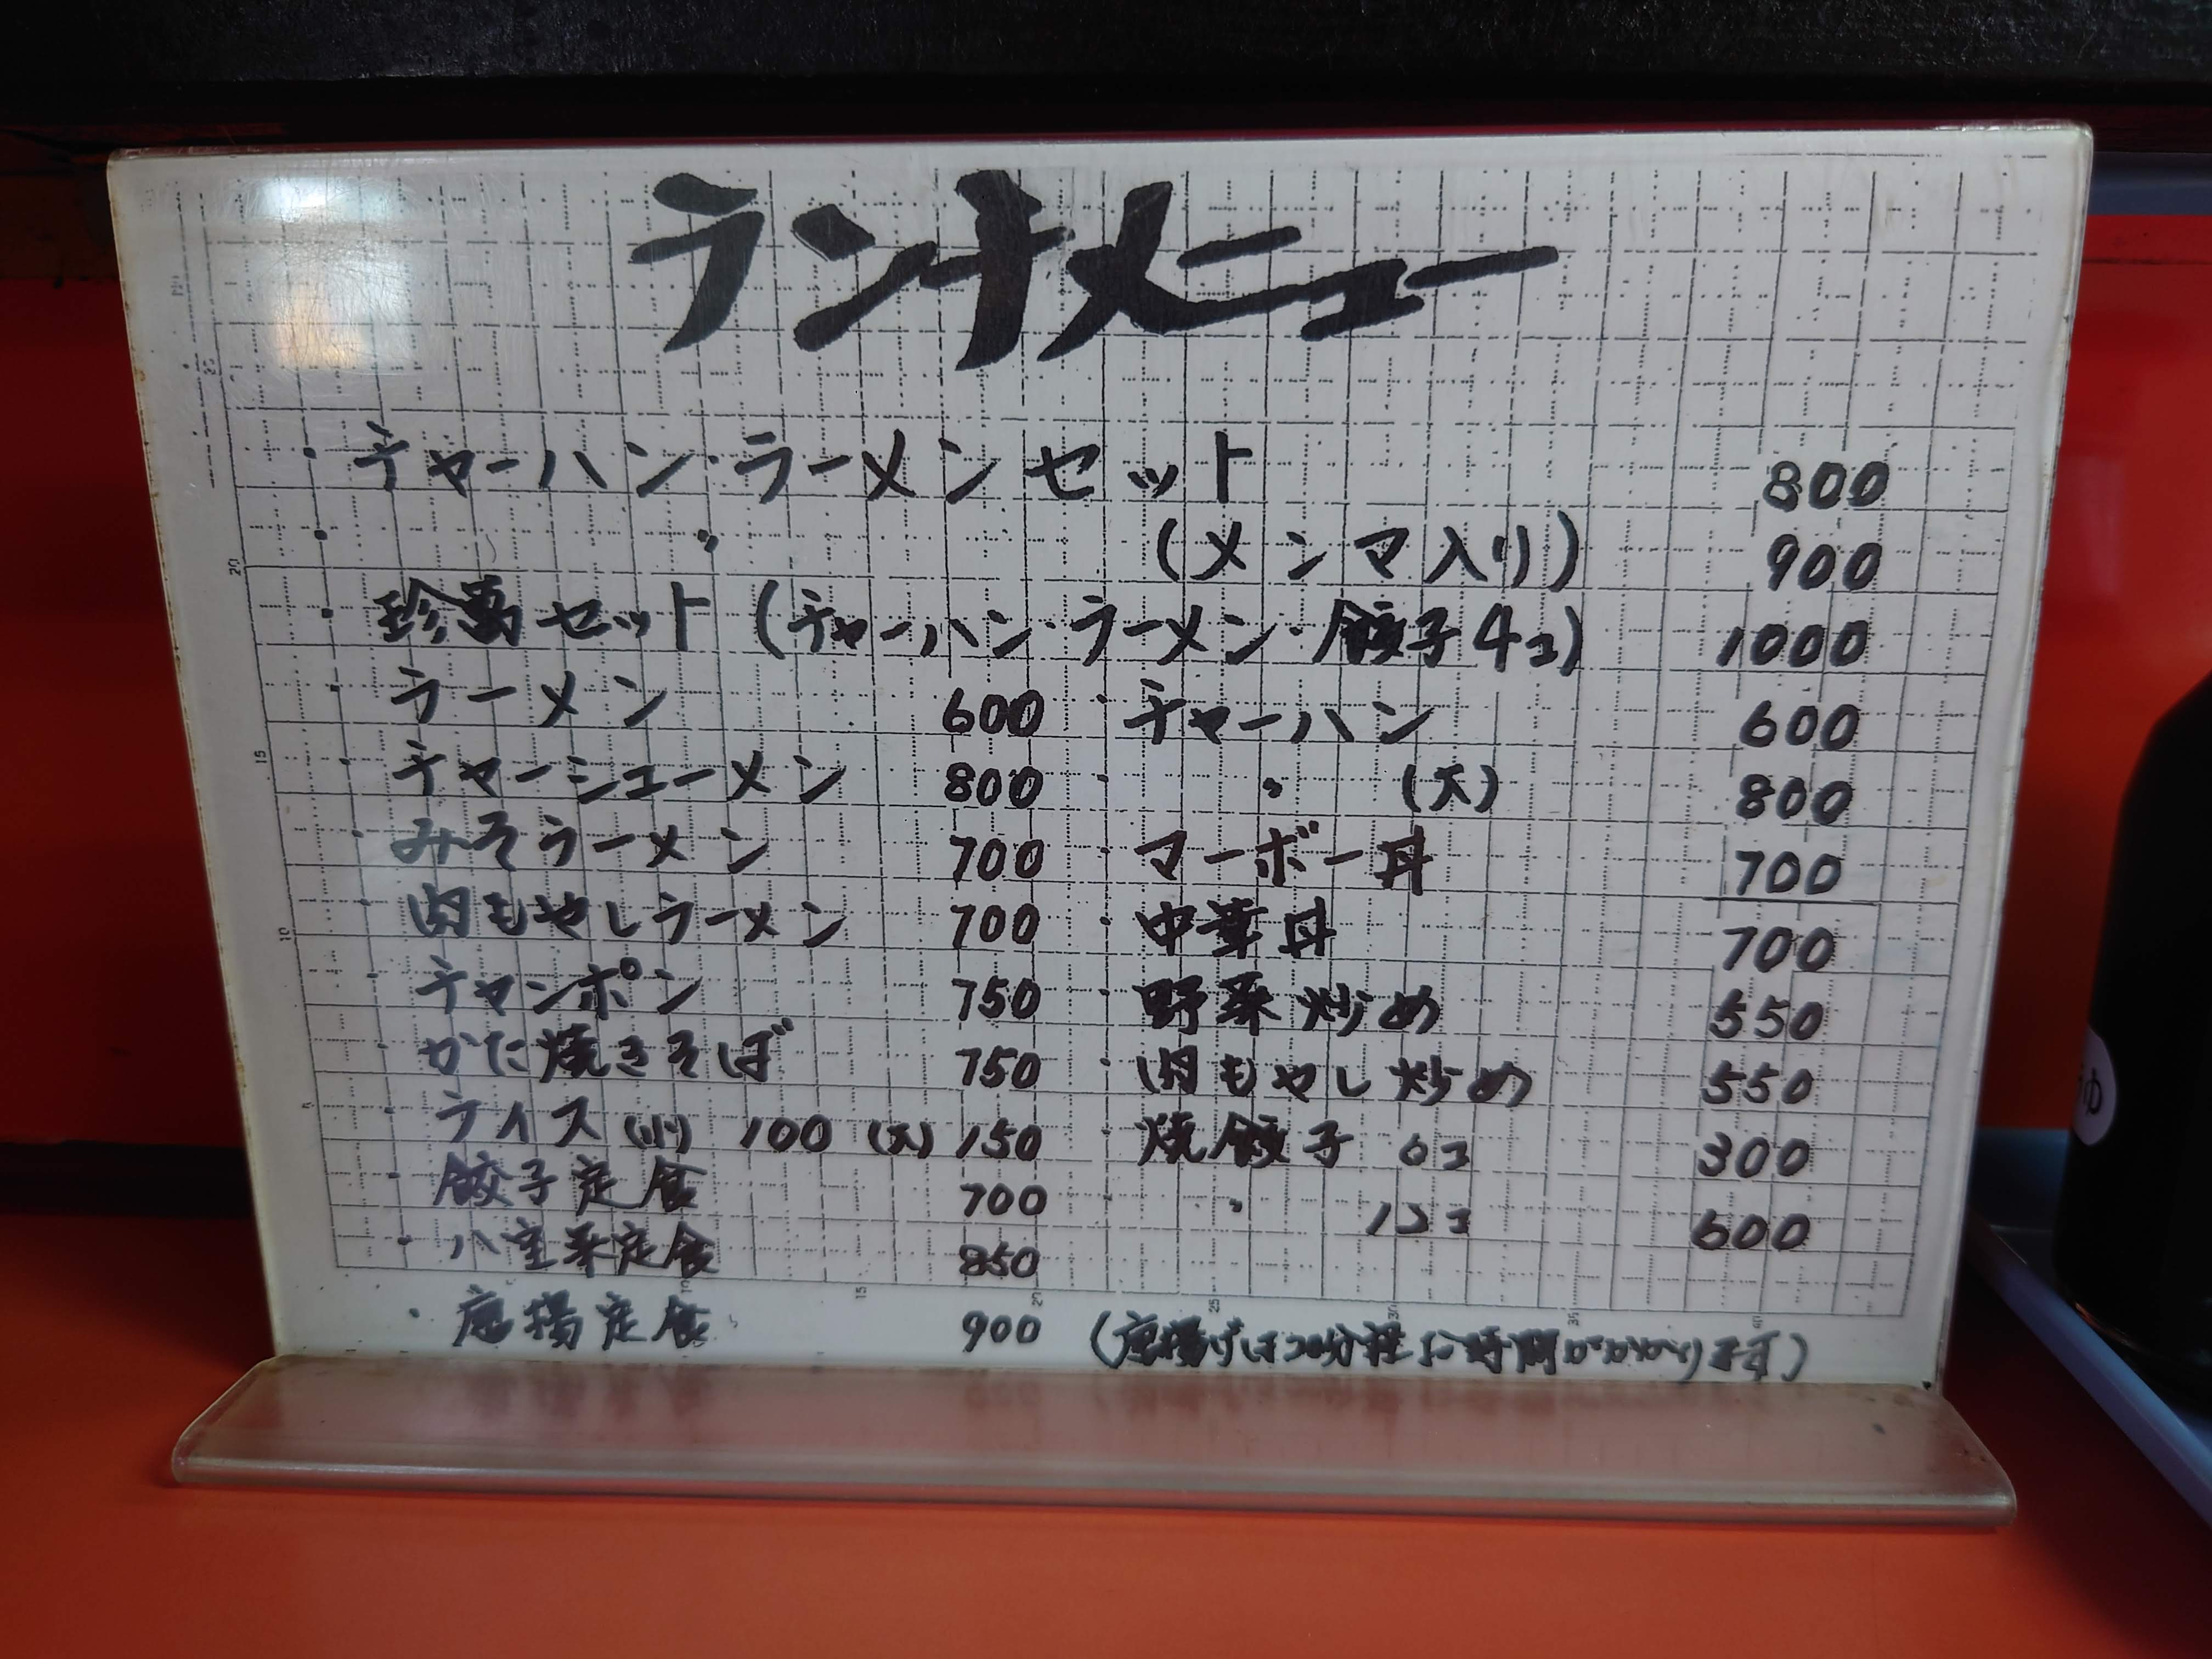 ランチメニュー
・チャーハン・ラーメンセット 800
・〃 (メンマ入り) 900
・珍萬セット(チャーハン・ラーメン・餃子4コ) 1000
・ラーメン 600 ・チャーハン 600
・チャーシューメン 800 ・〃 (大) 800
・みそラーメン 700 ・マーボー丼 700
・肉もやしラーメン 700 ・中華丼 700
・チャンポン 750 ・野菜炒め 550
・かた焼きそば 750 ・肉もやし炒め 550
・ライス(小) 100 (大) 150 ・焼餃子 6コ 300
・餃子定食 700 ・〃 12コ 600
・八宝菜定食 850
・唐揚定食 900 (唐揚げは20分程お時間がかかります)